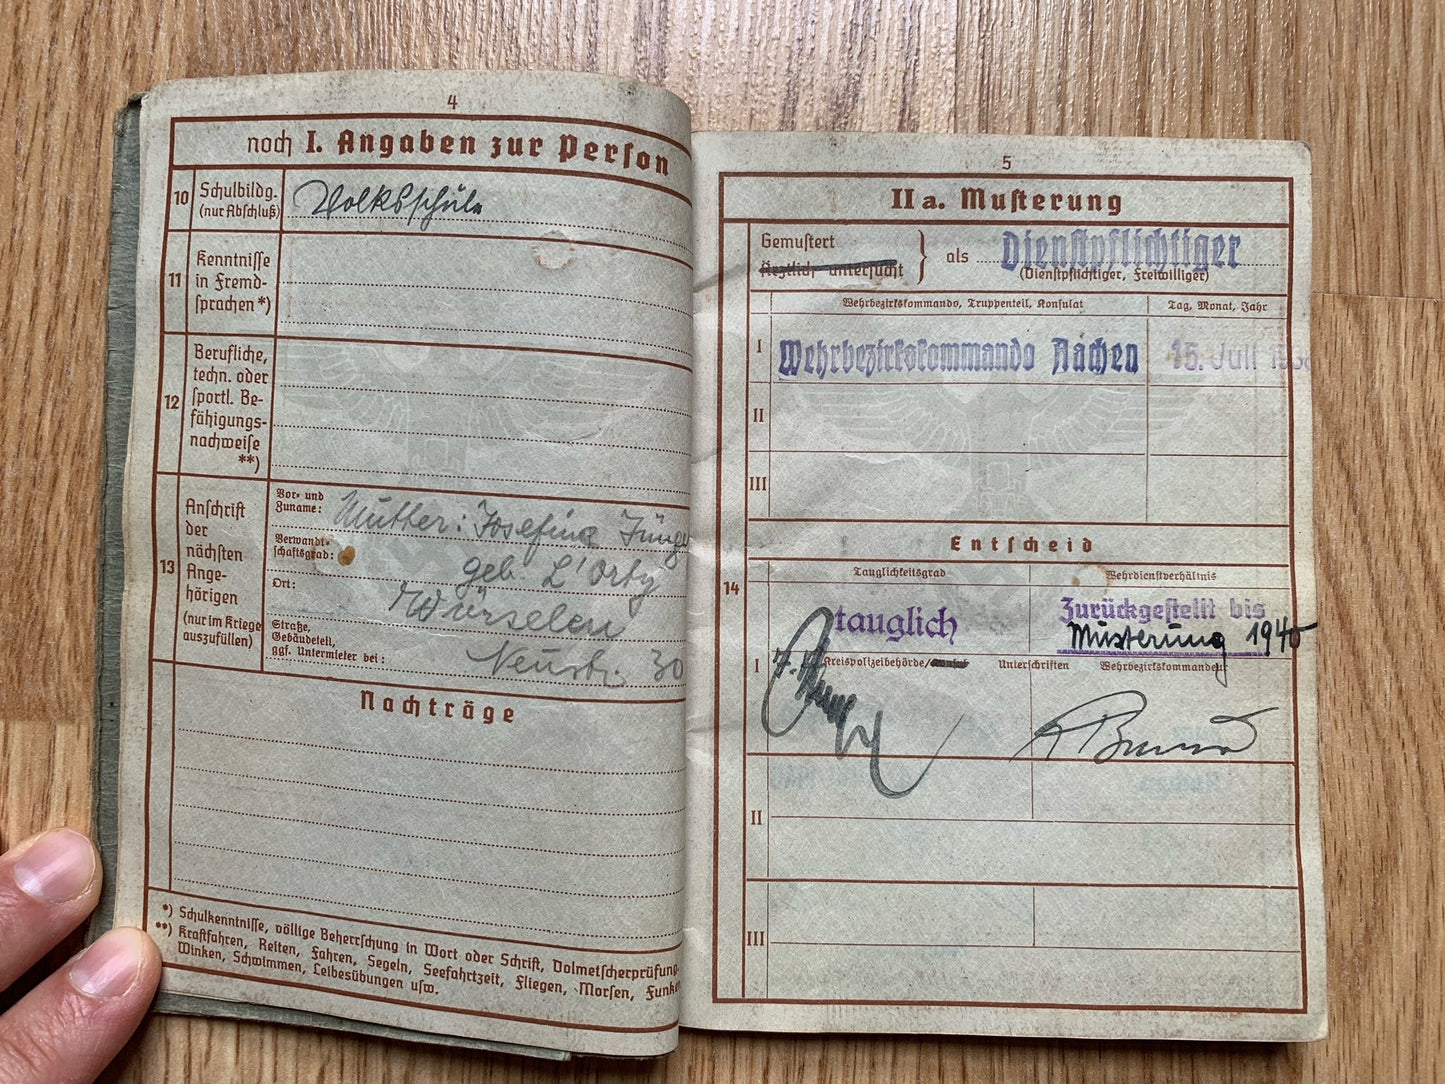 4
noch I. Angaben zur Person
10
Schulbildg.
(nur Abschluß)
Volksschule
11
Kenntnisse
in Fremd-
sprachen *)
12
Berufliche,
techn. oder
sportl. Be-
fähigungs-
nachweise
**)
13
Anschrift
der
nächsten
Ange-
hörigen
(nur im Kriege
auszufüllen)
Vor- und
Zuname:
Mutter: Josefine
Verwandt-
schaftsgrad:
geb. L'Orty
Ort:
Würselen
Straße,
Gebäudeteil,
ggf. Untermieter bei:
Neustr. 30
Nachträge
*) Schulkenntnisse, völlige Beherrschung in Wort oder Schrift, Dolmetscherprüfung.
**) Kraftfahren, Reiten, Fahren, Segeln, Seefahrtzeit, Fliegen, Morsen, Funken
Winken, Schwimmen, Leibesübungen usw.
5
II a. Musterung
Gemustert
Ärztlich untersucht
als
Dienstpflichtiger
(Dienstpflichtiger, Freiwilliger)
Wehrbezirkskommando, Truppenteil, Konsulat
Tag, Monat, Jahr
I
Wehrbezirkskommando Aachen
15. Juli
II
III
Entscheid
14
Tauglichkeitsgrad
Wehrdienstverhältnis
tauglich
Zurückgestellt bis
Musterung 1940
I
Kreispolizeibehörde/
Unterschriften
Wehrbezirkskommandeur
II
III